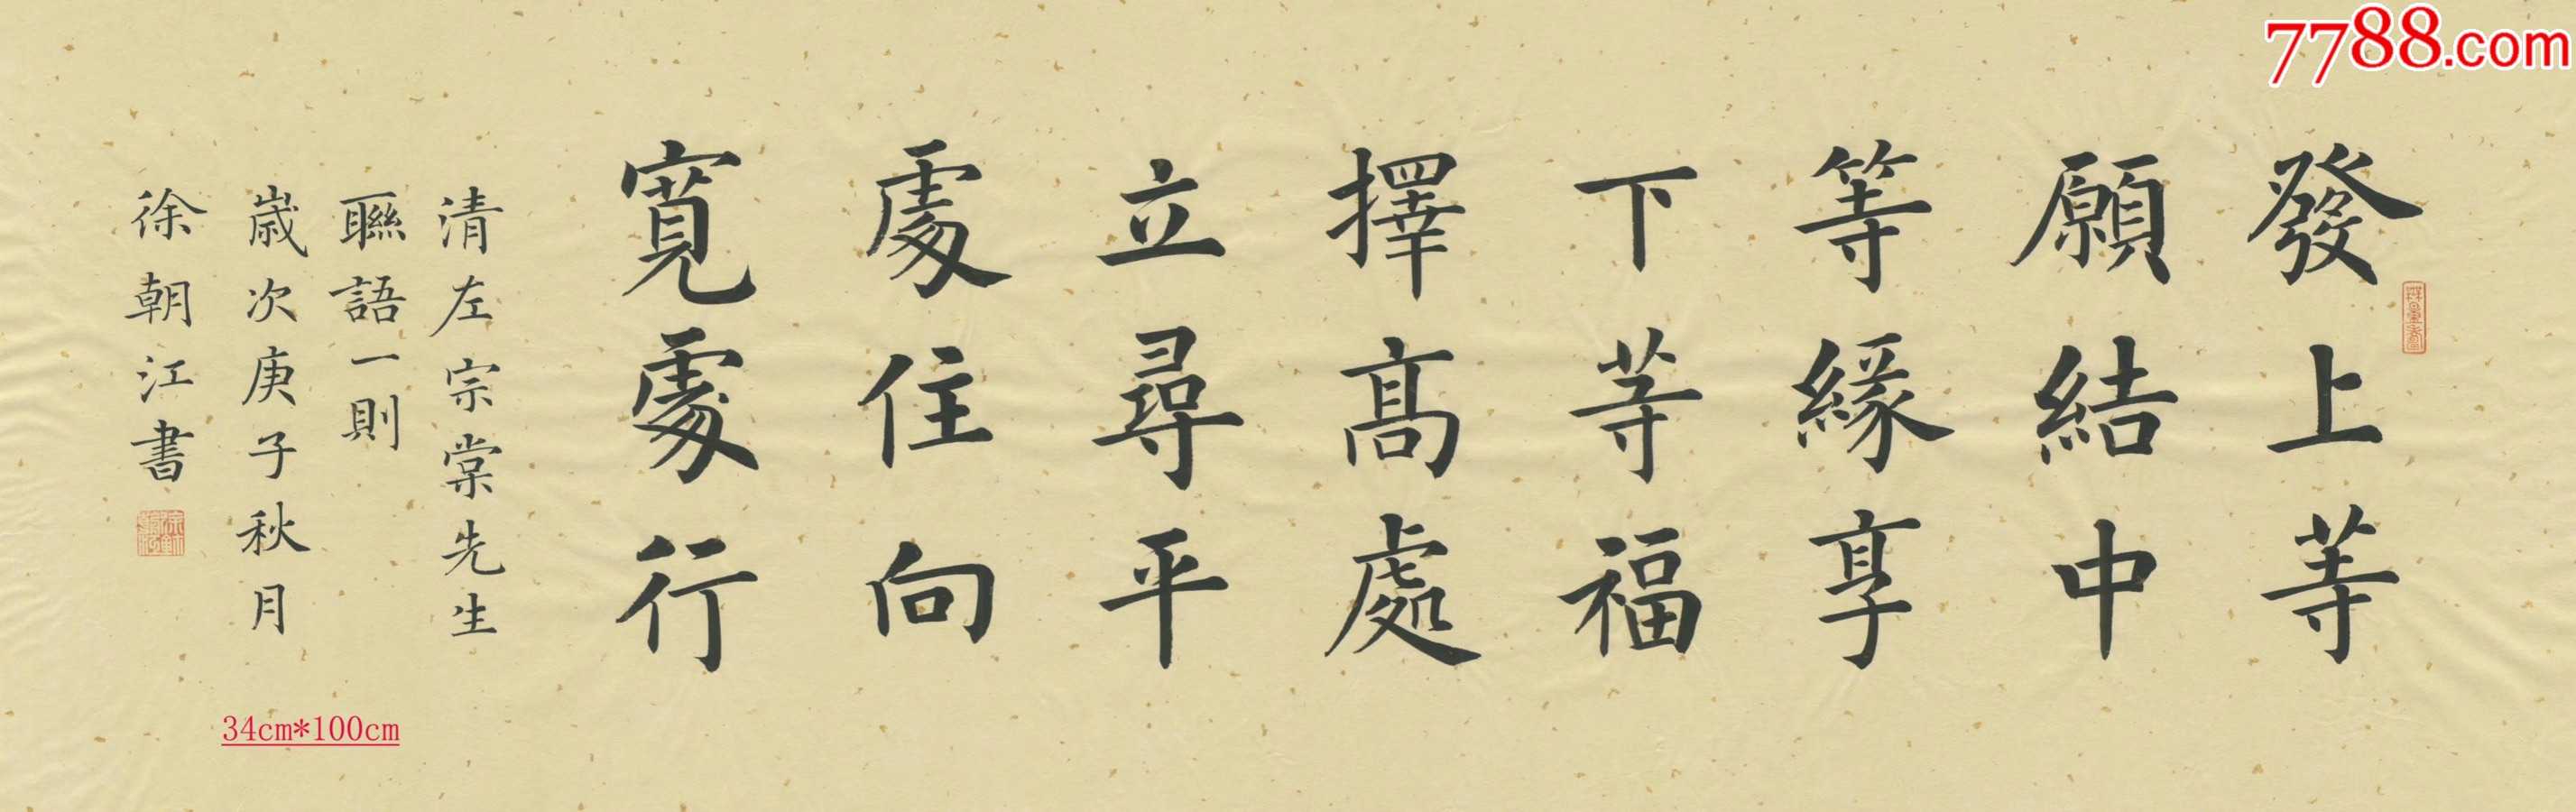 發上等
願結中
等緣享
下等福
擇高處
立尋平
處住向
寬處行
清左宗棠先生
聯語一則
歲次庚子秋月
徐朝江書
34cm*100cm
7788.com